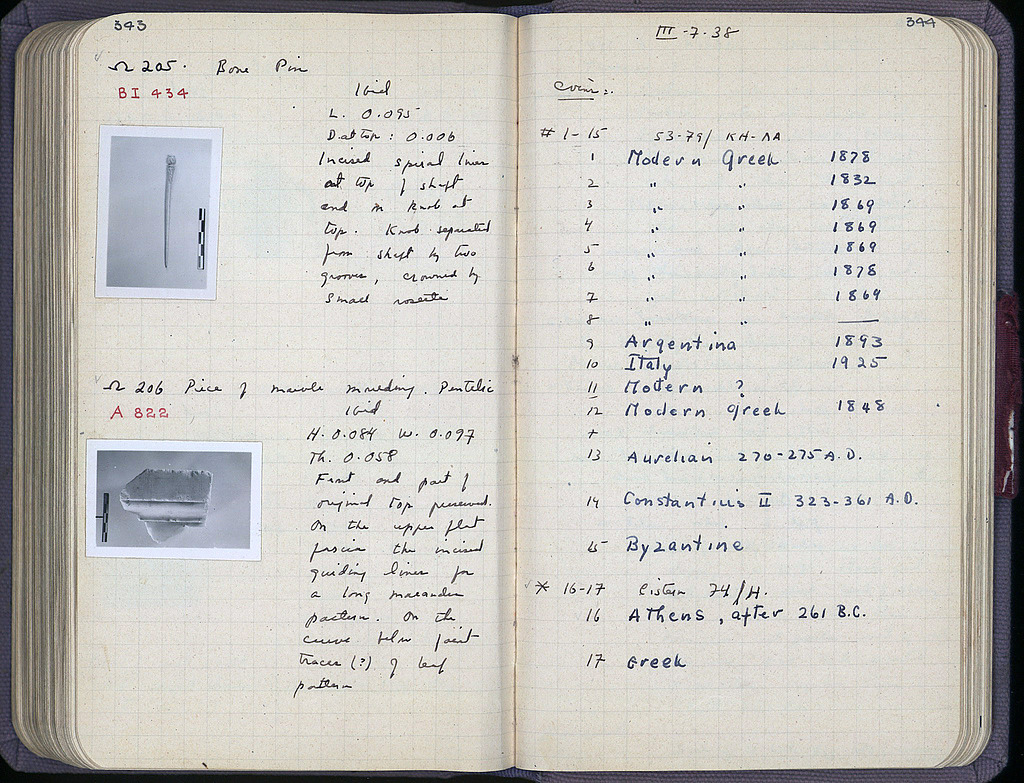 343
Ω 205. Bone Pin
BI 434
Ibid
L. 0.095
D. at top: 0.006
Incised spiral lines
at top of shaft
and on knob at
top. Knob separated
from shaft by two
grooves, crowned by
small rosette
Ω 206 Piece of marble moulding. Pentelic
A 822
Ibid
H. 0.084 W. 0.097
Th. 0.058
Front and part of
original top preserved.
On the upper flat
fascia the incised
guiding lines for
a long maeander
pattern. On the
curve below faint
traces (?) of leaf
pattern
344
III-7-38
Coins:
# 1-15 53-79/ KH-ΛΑ
1 Modern Greek 1878
2 " " 1832
3 " " 1869
4 " " 1869
5 " " 1869
6 " " 1878
7 " " 1869
8 " " —
9 Argentina 1893
10 Italy 1925
11 Modern ?
12 Modern Greek 1848
+
13 Aurelian 270-275 A.D.
14 Constantius II 323-361 A.D.
15 Byzantine
* 16-17 Cistern 74/H.
16 Athens, after 261 B.C.
17 Greek